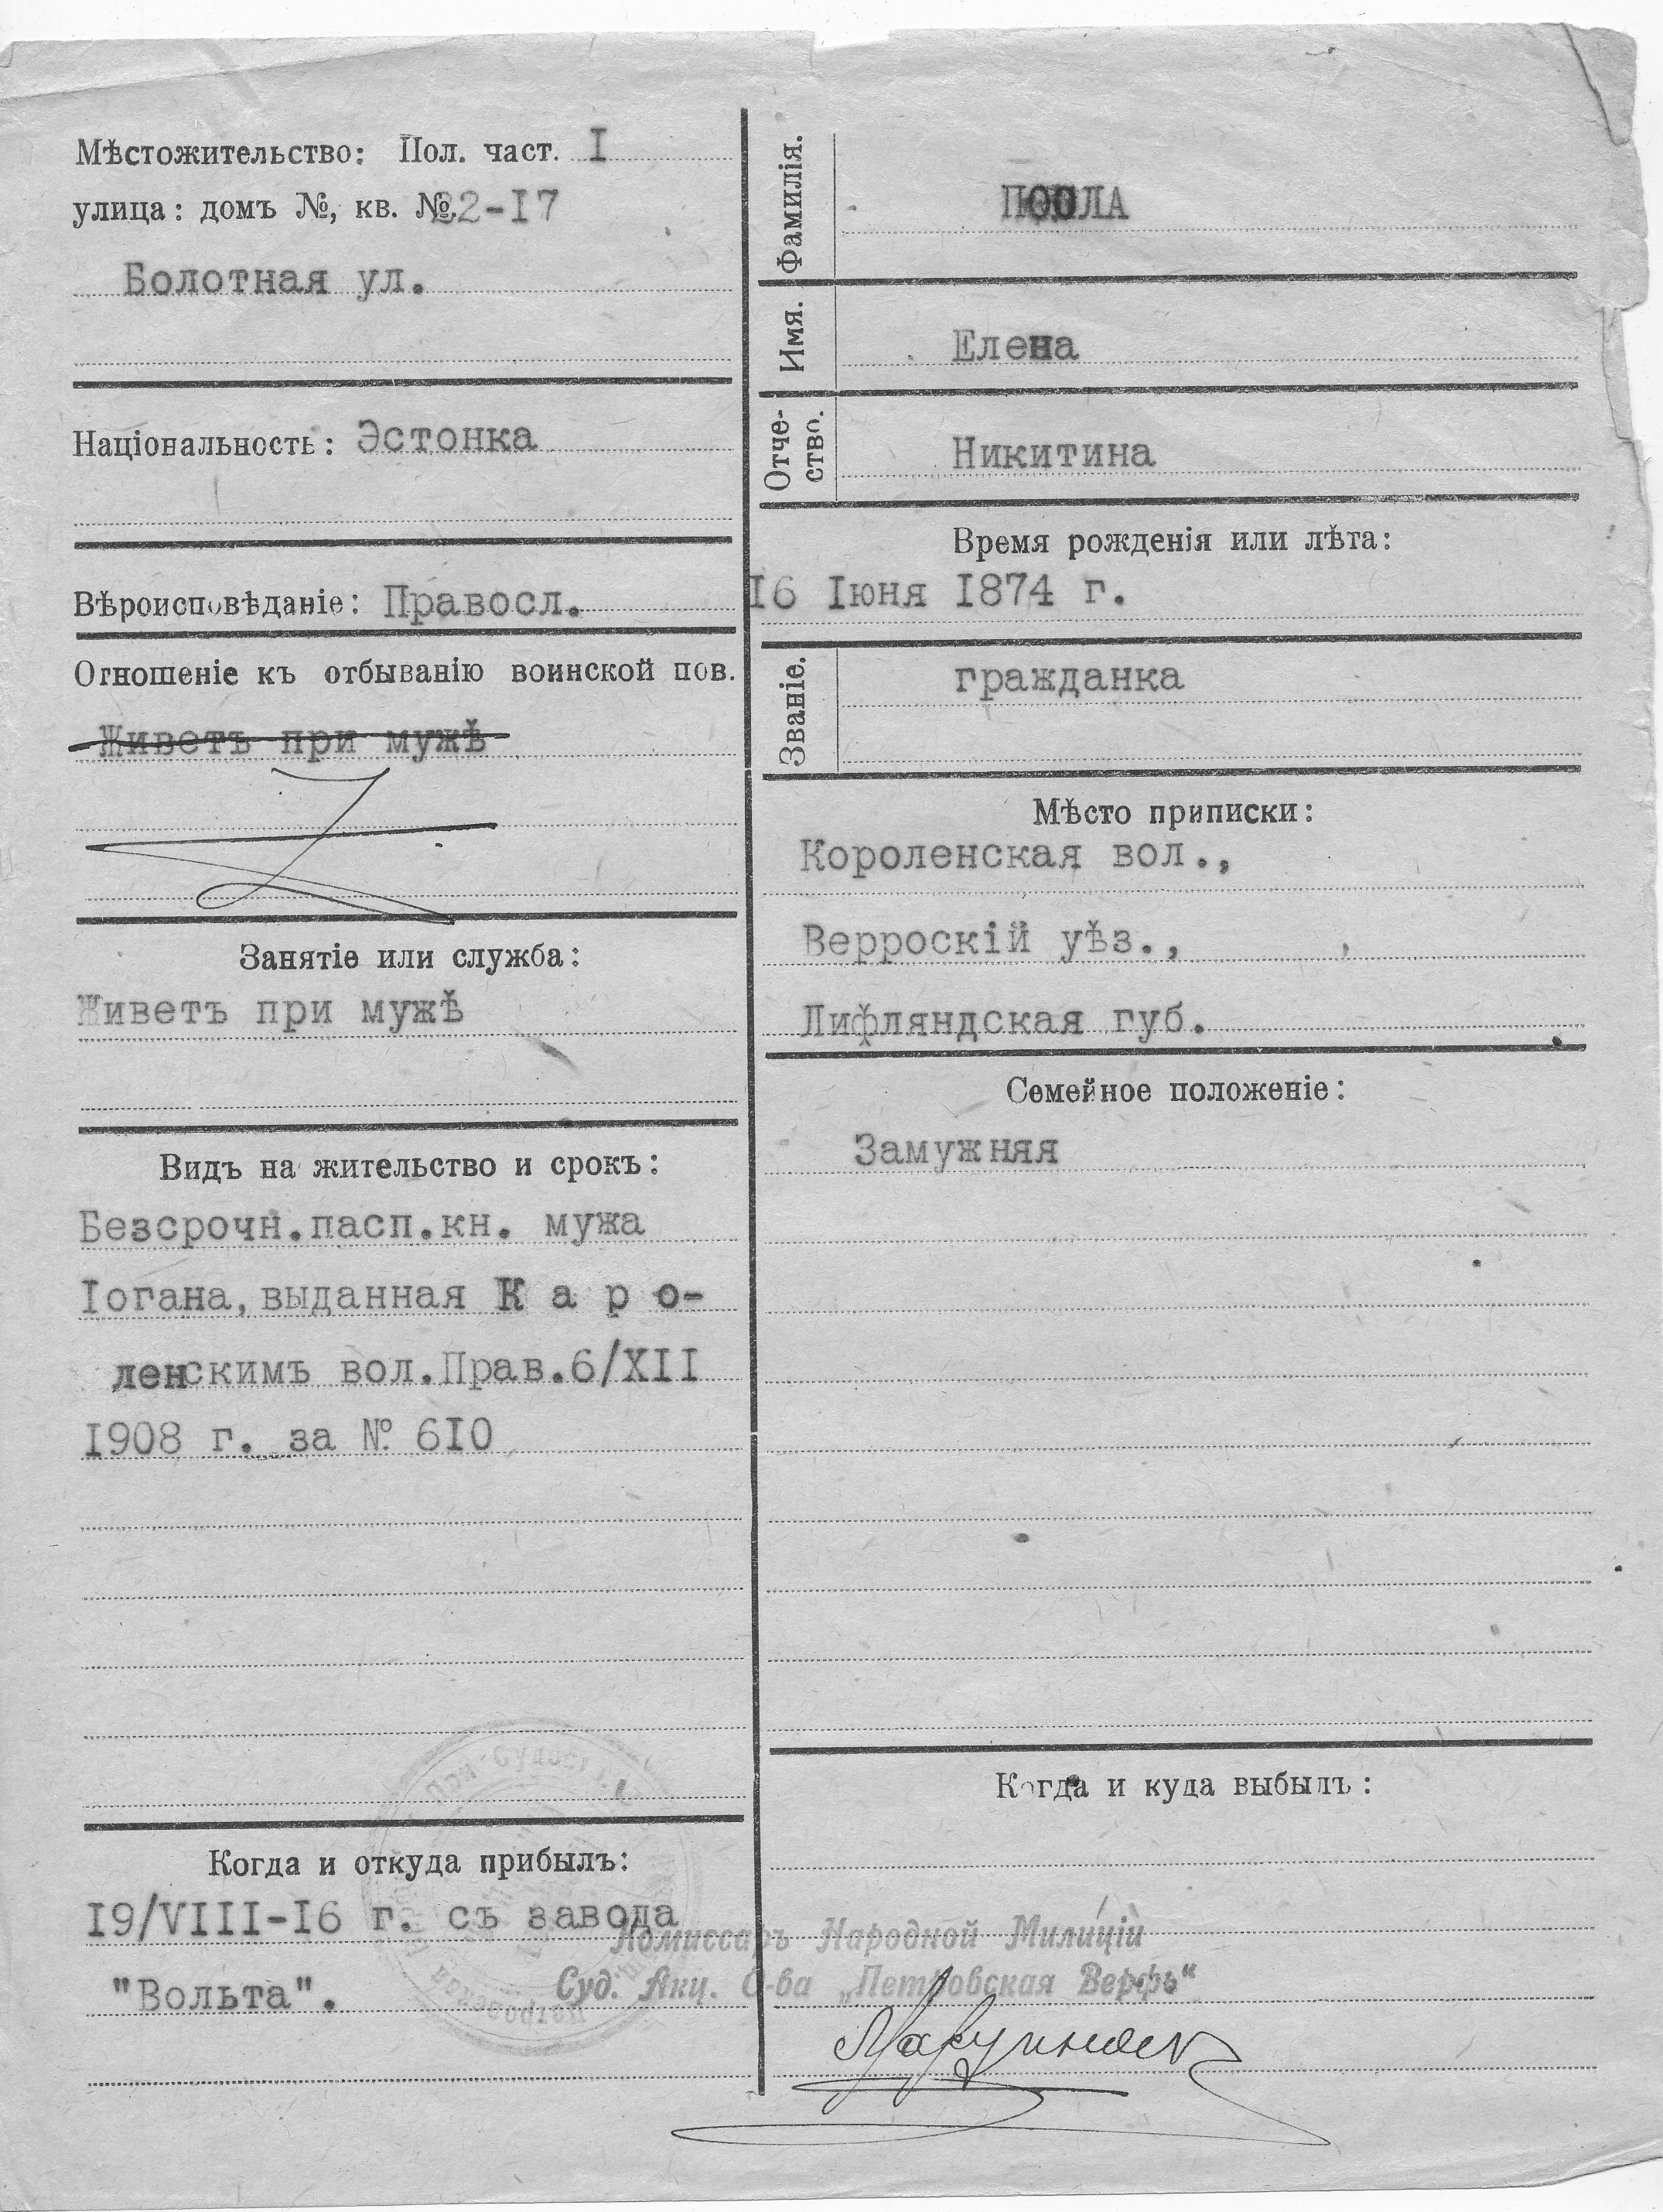 Мѣстожительство: Пол. част. I
улица: домъ №, кв. № 22-I7
Болотная ул.
Національность: Эстонка
Вѣроисповѣданіе: Правосл.
Отношеніе къ отбыванію воинской пов.
Живетъ при мужѣ
Занятіе или служба:
Живетъ при мужѣ
Видъ на жительство и срокъ:
Безсрочн.пасп.кн. мужа
Іогана, выданная К а р о-
ленскимъ вол.Прав.6/XII
I908 г. за № 6I0
Когда и откуда прибылъ:
I9/VIII-I6 г. съ завода
"Вольта".
Фамилія.
ПООЛА
Имя.
Елена
Отче-
ство.
Никитина
Время рожденія или лѣта:
I6 Іюня I874 г.
Званіе.
гражданка
Мѣсто приписки:
Короленская вол.,
Верроскій уѣз.,
Лифляндская губ.
Семейное положеніе:
Замужняя
Когда и куда выбылъ:
Комиссаръ Народной Милиціи
Суд. Акц. О-ва „Петровская Верфь“